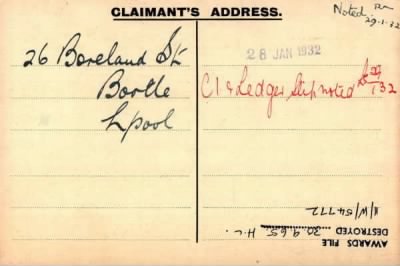 CLAIMANT'S ADDRESS.
Noted.
29-1-32
26 Boreland St
Bootle
Lpool
28 JAN 1932
C1 & Ledger Slip noted
1 32
AWARDS FILE
DESTROYED 30.9.65 H.L.
11/W/54772